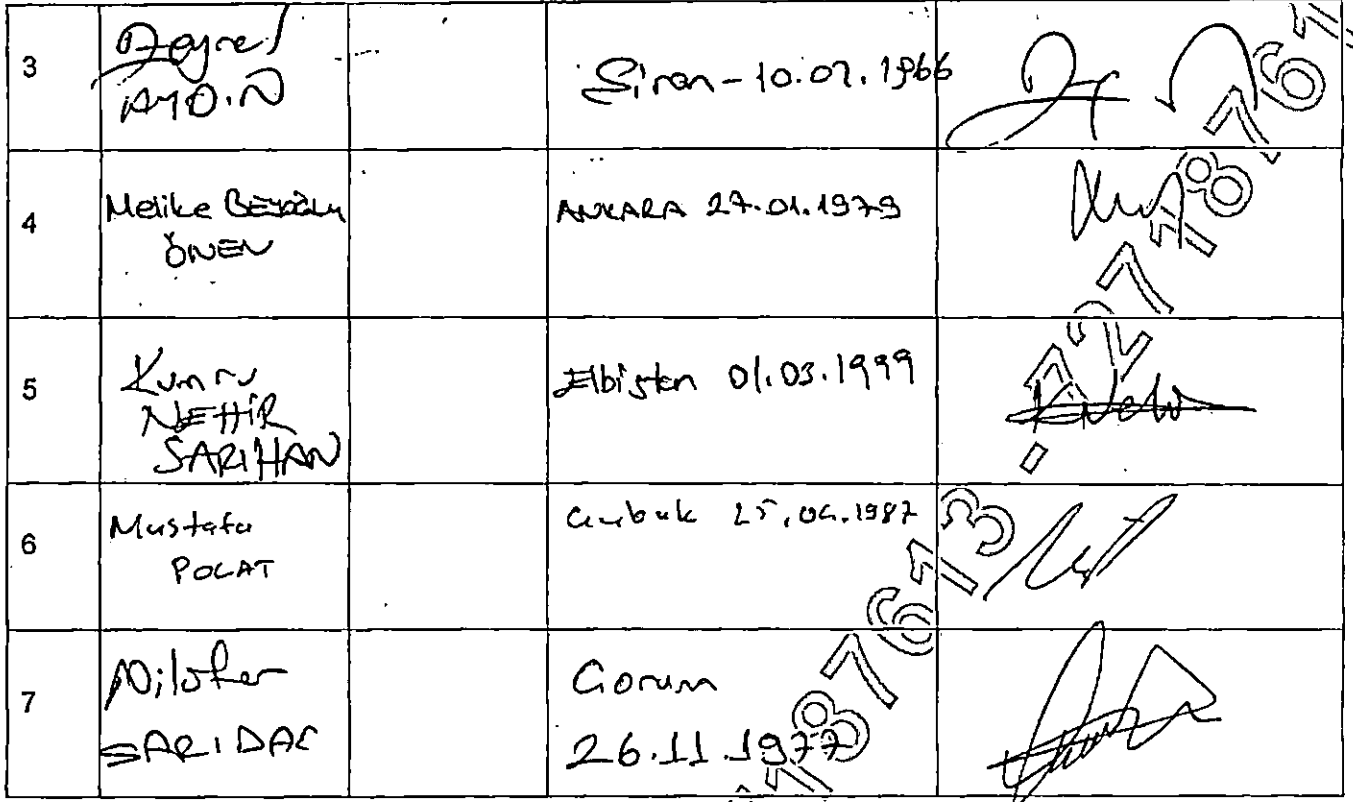 3
Zeynel
AYDIN
Siran - 10.07.1966
4
Melike BEYOĞLU
ÖNEN
ANKARA 27.01.1979
5
Kumru
NEHİR
SARIHAN
Elbistan 01.03.1999
6
Mustafa
POLAT
Çubuk 25.04.1987
7
Nilüfer
SARIDAÇ
Çorum
26.11.1977